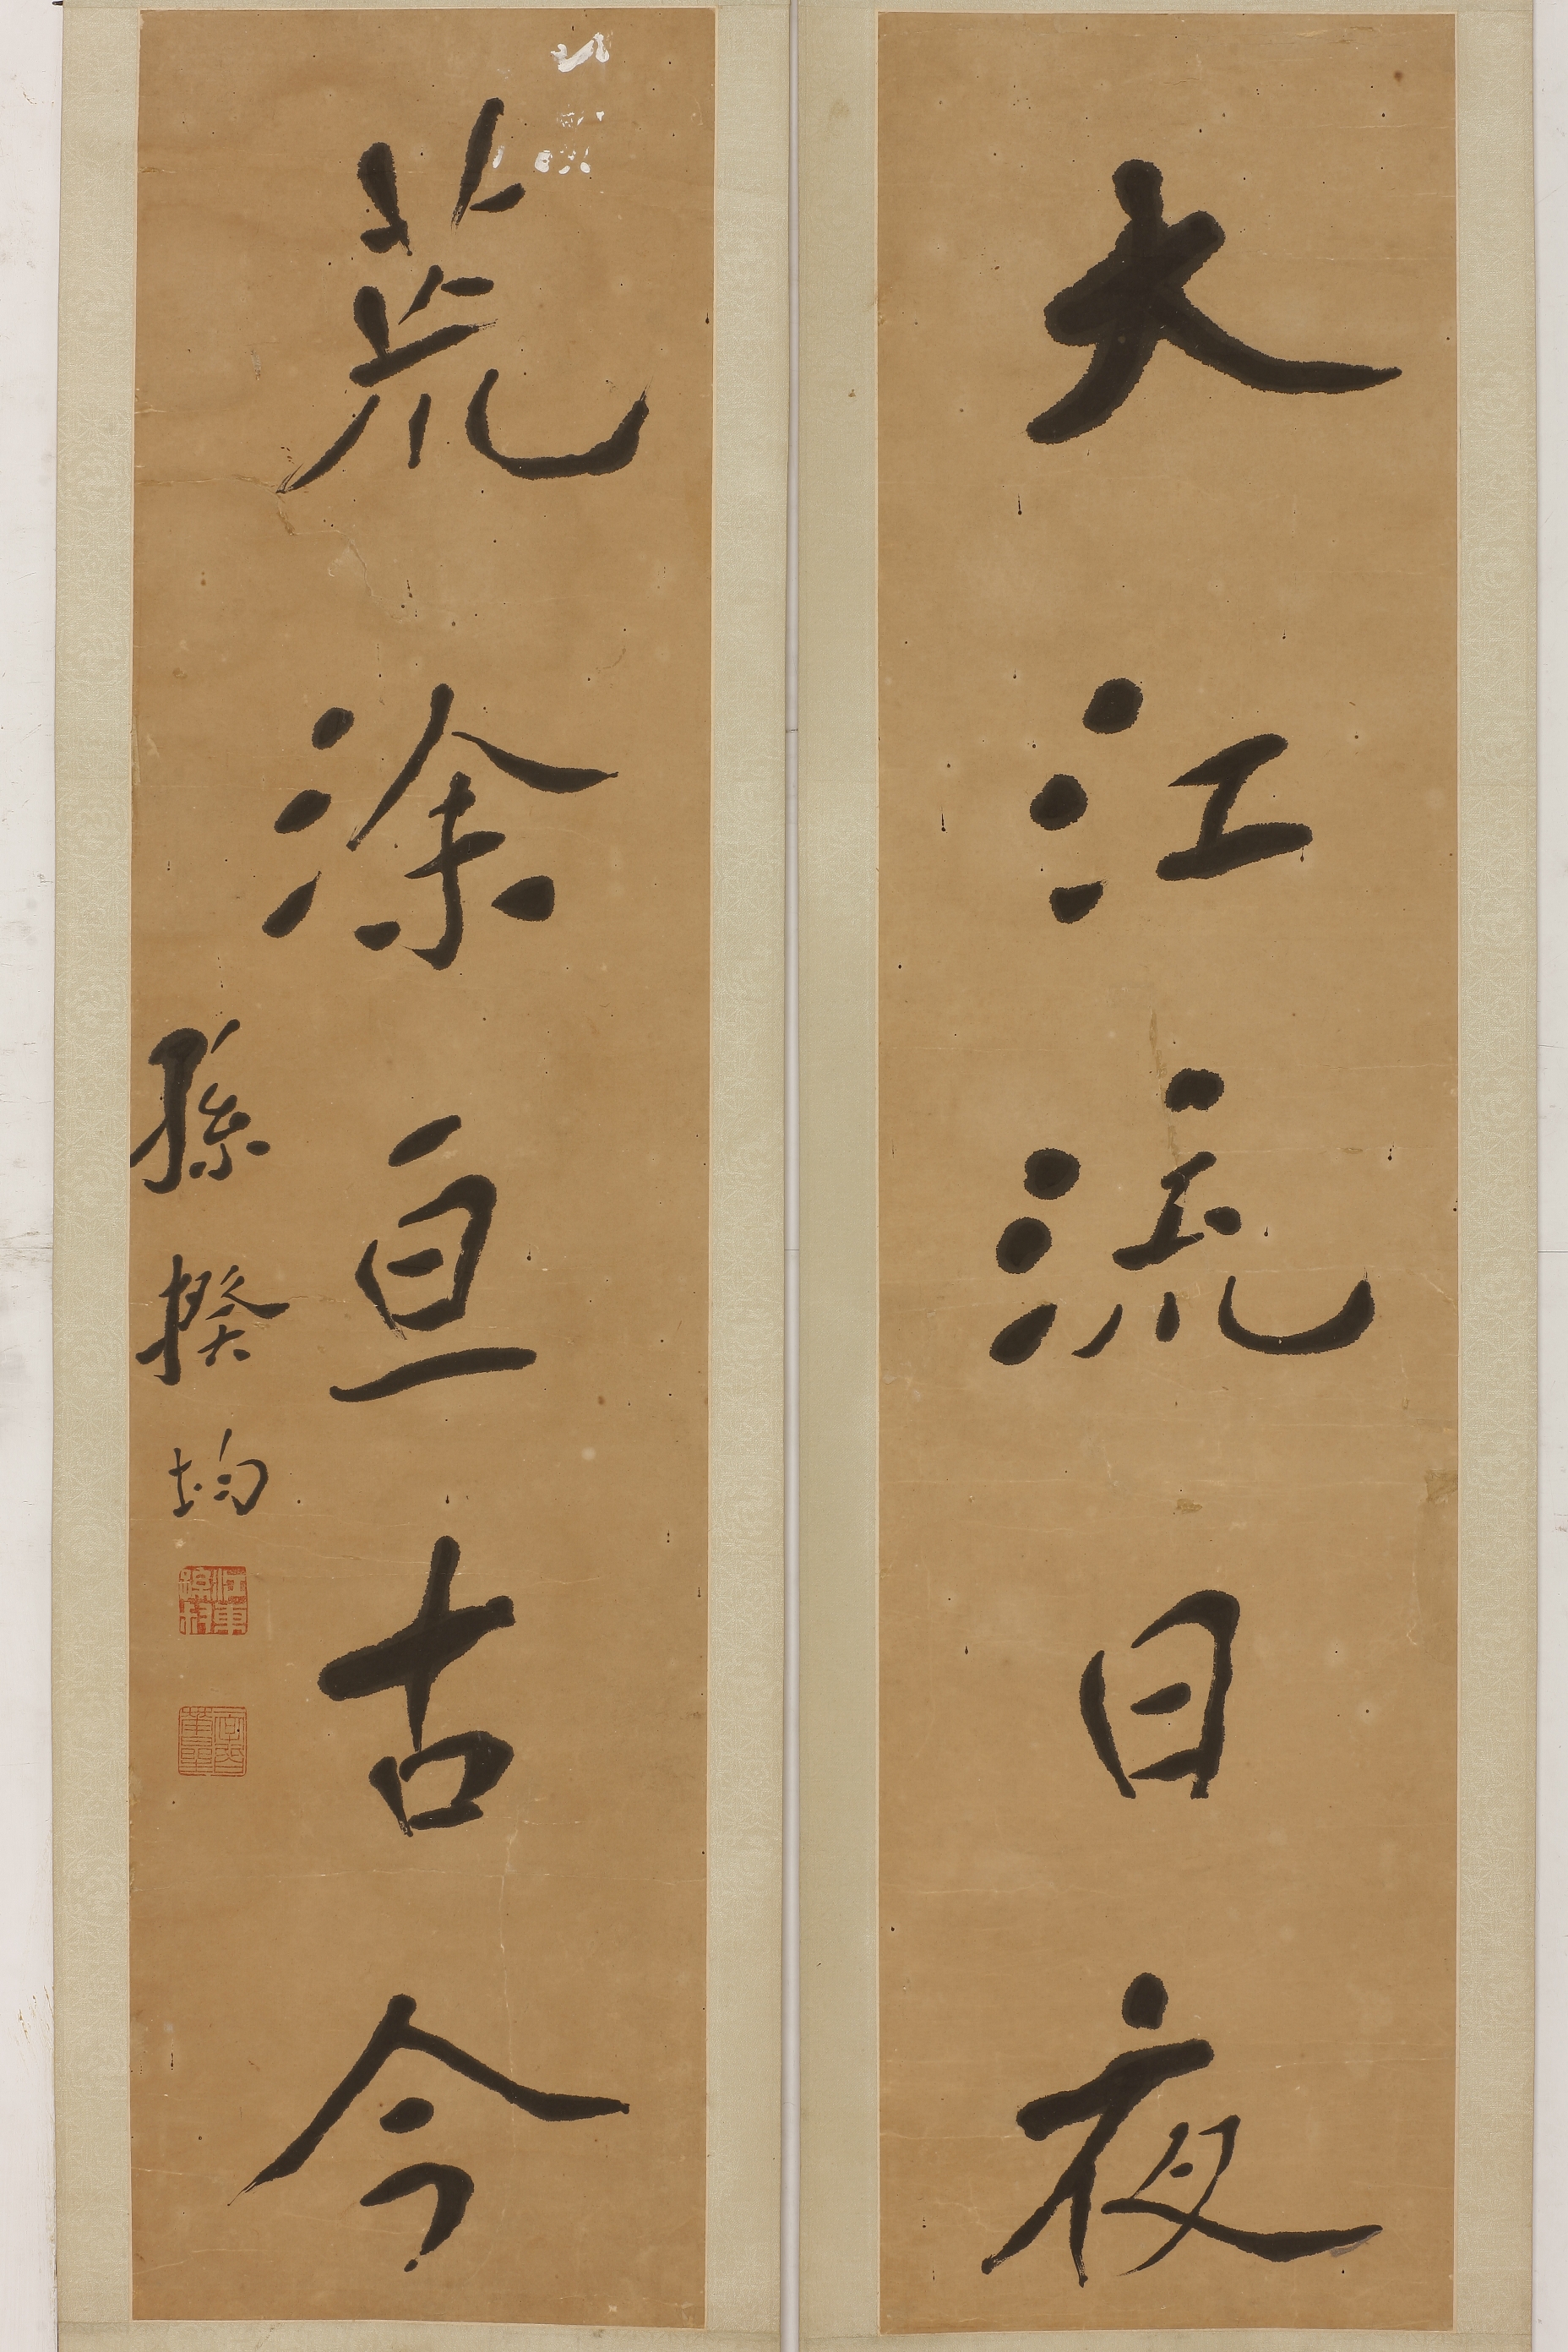 大江流日夜
荒涂亘古今
孫揆均